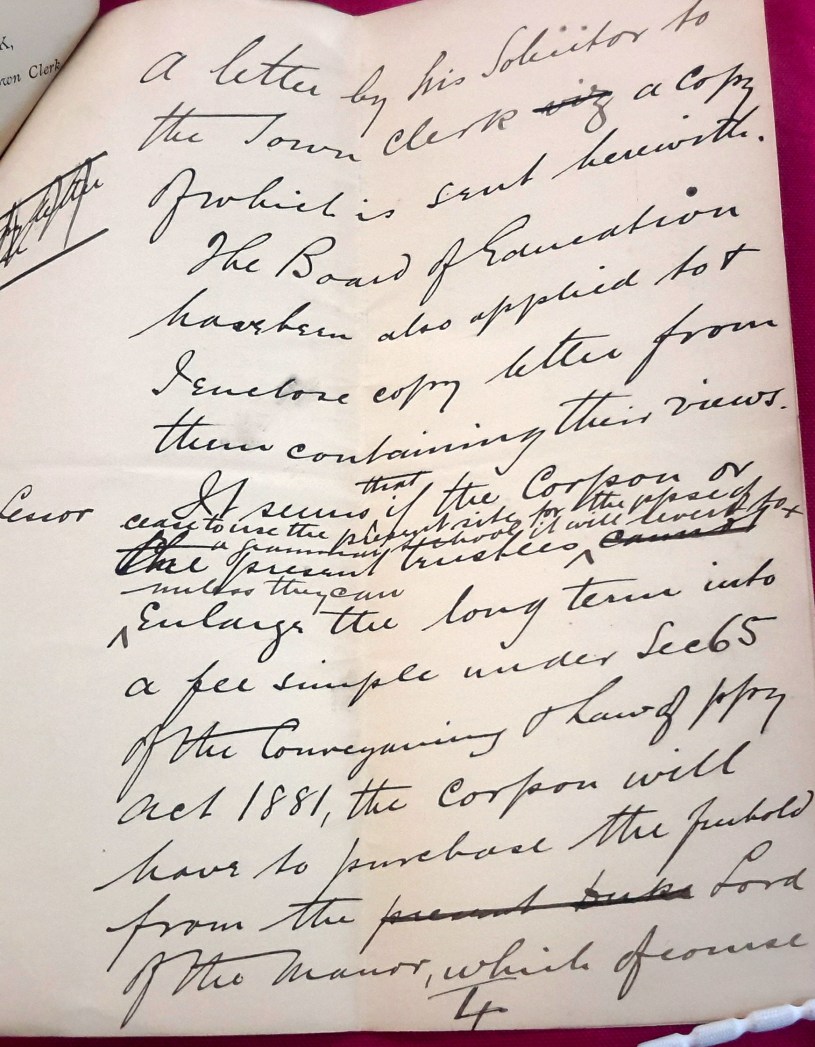 K,
Town Clerk
letter
a letter by his Solicitor to
the Town Clerk viz a copy
of which is sent herewith.
The Board of Education
have been also applied to &
I enclose copy letter from
them containing their views.
that
It seems if the Corpon or
cease to use the present site for the ppse of
a grammar school it will revert to
the present trustees cannot
unless they can
Enlarge the long term into
a fee simple under Sec 65
of the Conveyancing & Law of ppty
Act 1881, the Corpon will
have to purchase the freehold
from the present Duke Lord
of the Manor, which of course
4
Lessor